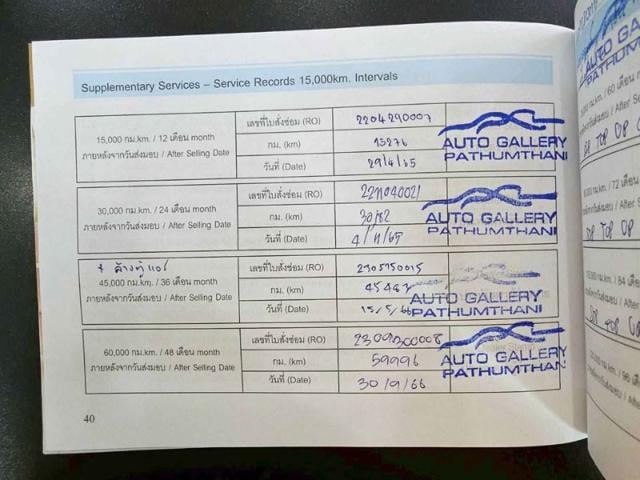 Supplementary Services – Service Records 15,000km. Intervals
15,000 กม.km. / 12 เดือน month
ภายหลังจากวันส่งมอบ / After Selling Date
เลขที่ใบสั่งซ่อม (RO) 2204290007
กม. (km) 13276
วันที่ (Date) 29/4/65
AUTO GALLERY
PATHUMTHANI
30,000 กม.km. / 24 เดือน month
ภายหลังจากวันส่งมอบ / After Selling Date
เลขที่ใบสั่งซ่อม (RO) 2211040021
กม. (km)
วันที่ (Date) 4/11/65
AUTO GALLERY
PATHUMTHANI
+ ล้างตู้แอร์
45,000 กม.km. / 36 เดือน month
ภายหลังจากวันส่งมอบ / After Selling Date
เลขที่ใบสั่งซ่อม (RO) 2305150015
กม. (km)
วันที่ (Date) 15/5/66
AUTO GALLERY
PATHUMTHANI
60,000 กม.km. / 48 เดือน month
ภายหลังจากวันส่งมอบ / After Selling Date
เลขที่ใบสั่งซ่อม (RO) 2309300008
กม. (km) 59996
วันที่ (Date) 30/9/66
AUTO GALLERY
PATHUMTHANI
40